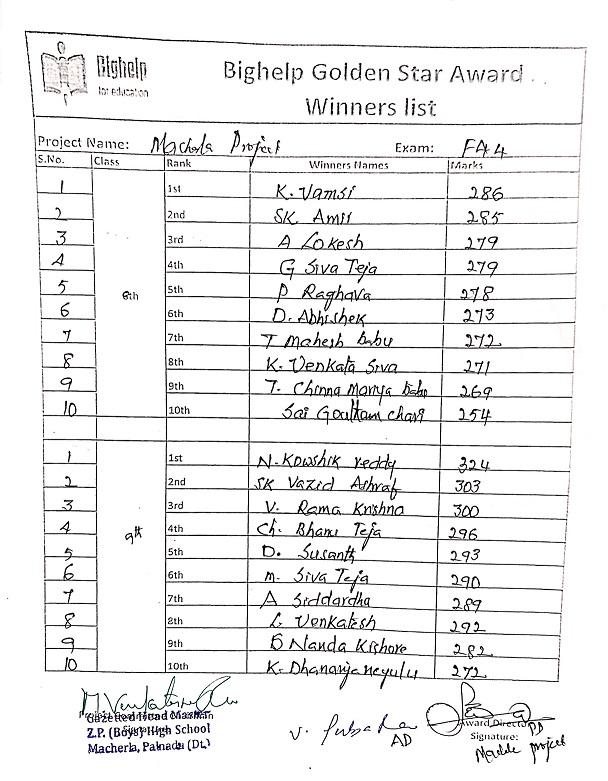 Bighelp
for education
Bighelp Golden Star Award
Winners list
Project Name: Macherla Project Exam: FA 4
S.No. Class Rank Winners Names Marks
1 1st K. Vamsi 286
2 2nd SK Amir 285
3 3rd A Lokesh 279
4 4th G Siva Teja 279
5 8th 5th P Raghava 278
6 6th D. Abhishek 273
7 7th T Mahesh babu 272
8 8th K. Venkata Siva 271
9 9th T. Chinna Mariya babu 269
10 10th Sai Goutham chari 254
1 1st N. Kowshik reddy 324
2 2nd SK Vazid Ashraf 303
3 3rd V. Rama Krishna 300
4 9th 4th Ch. Bhanu Teja 296
5 5th D. Susanth 293
6 6th M. Siva Teja 290
7 7th A Siddardha 289
8 8th L Venkatesh 292
9 9th B Nanda Kishore 282
10 10th K. Dhananjaneyulu 272
Gazetted Head Master
Z.P. (Boys) High School
Macherla, Palnadu (Dt.)
V.
AD
Award Director
PD
Signature:
project